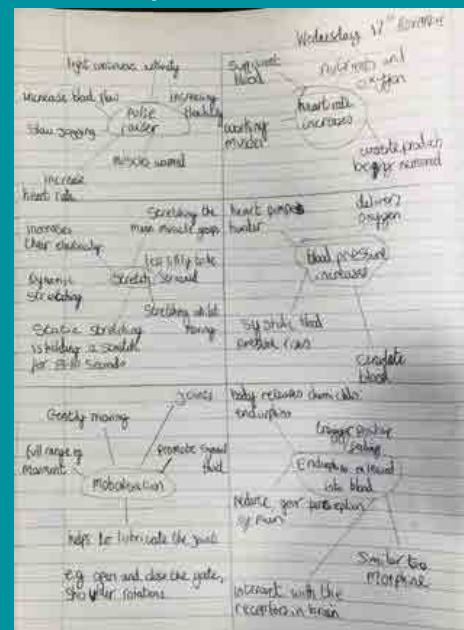 Wednesday 17th November
light continuous activity
increase blood flow
increasing flexibility
pulse raiser
slow jogging
muscles warmed
increase
heart rate
supply
blood
nutrients and
oxygen
heart rate
increases
working
muscles
waste product
removed
stretching the
main muscle groups
increases
their elasticity
less likely to be
Dynamic
stretching
Stretch
stretching whilst
moving
Static stretching
is holding a stretch
for
heart pumps
harder
delivers
oxygen
blood pressure
increases
systolic blood
pressure rises
circulate
blood
joints
Gently moving
full range of
movement
promote
fluid
Mobilisation
helps to lubricate the joint
e.g open and close the gate,
shoulder rotations
body releases chemicals
endorphins
trigger positive
feeling
released
into blood
reduce your perception
of pain
similar to
Morphine
interact with the
receptors in brain